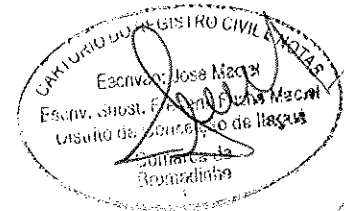 CARTÓRIO DO REGISTRO CIVIL E NOTAS
Escrivão: José Maciel
Escriv. Subst.
Distrito da Conceição de Itaguá
Comarca de
Brumadinho